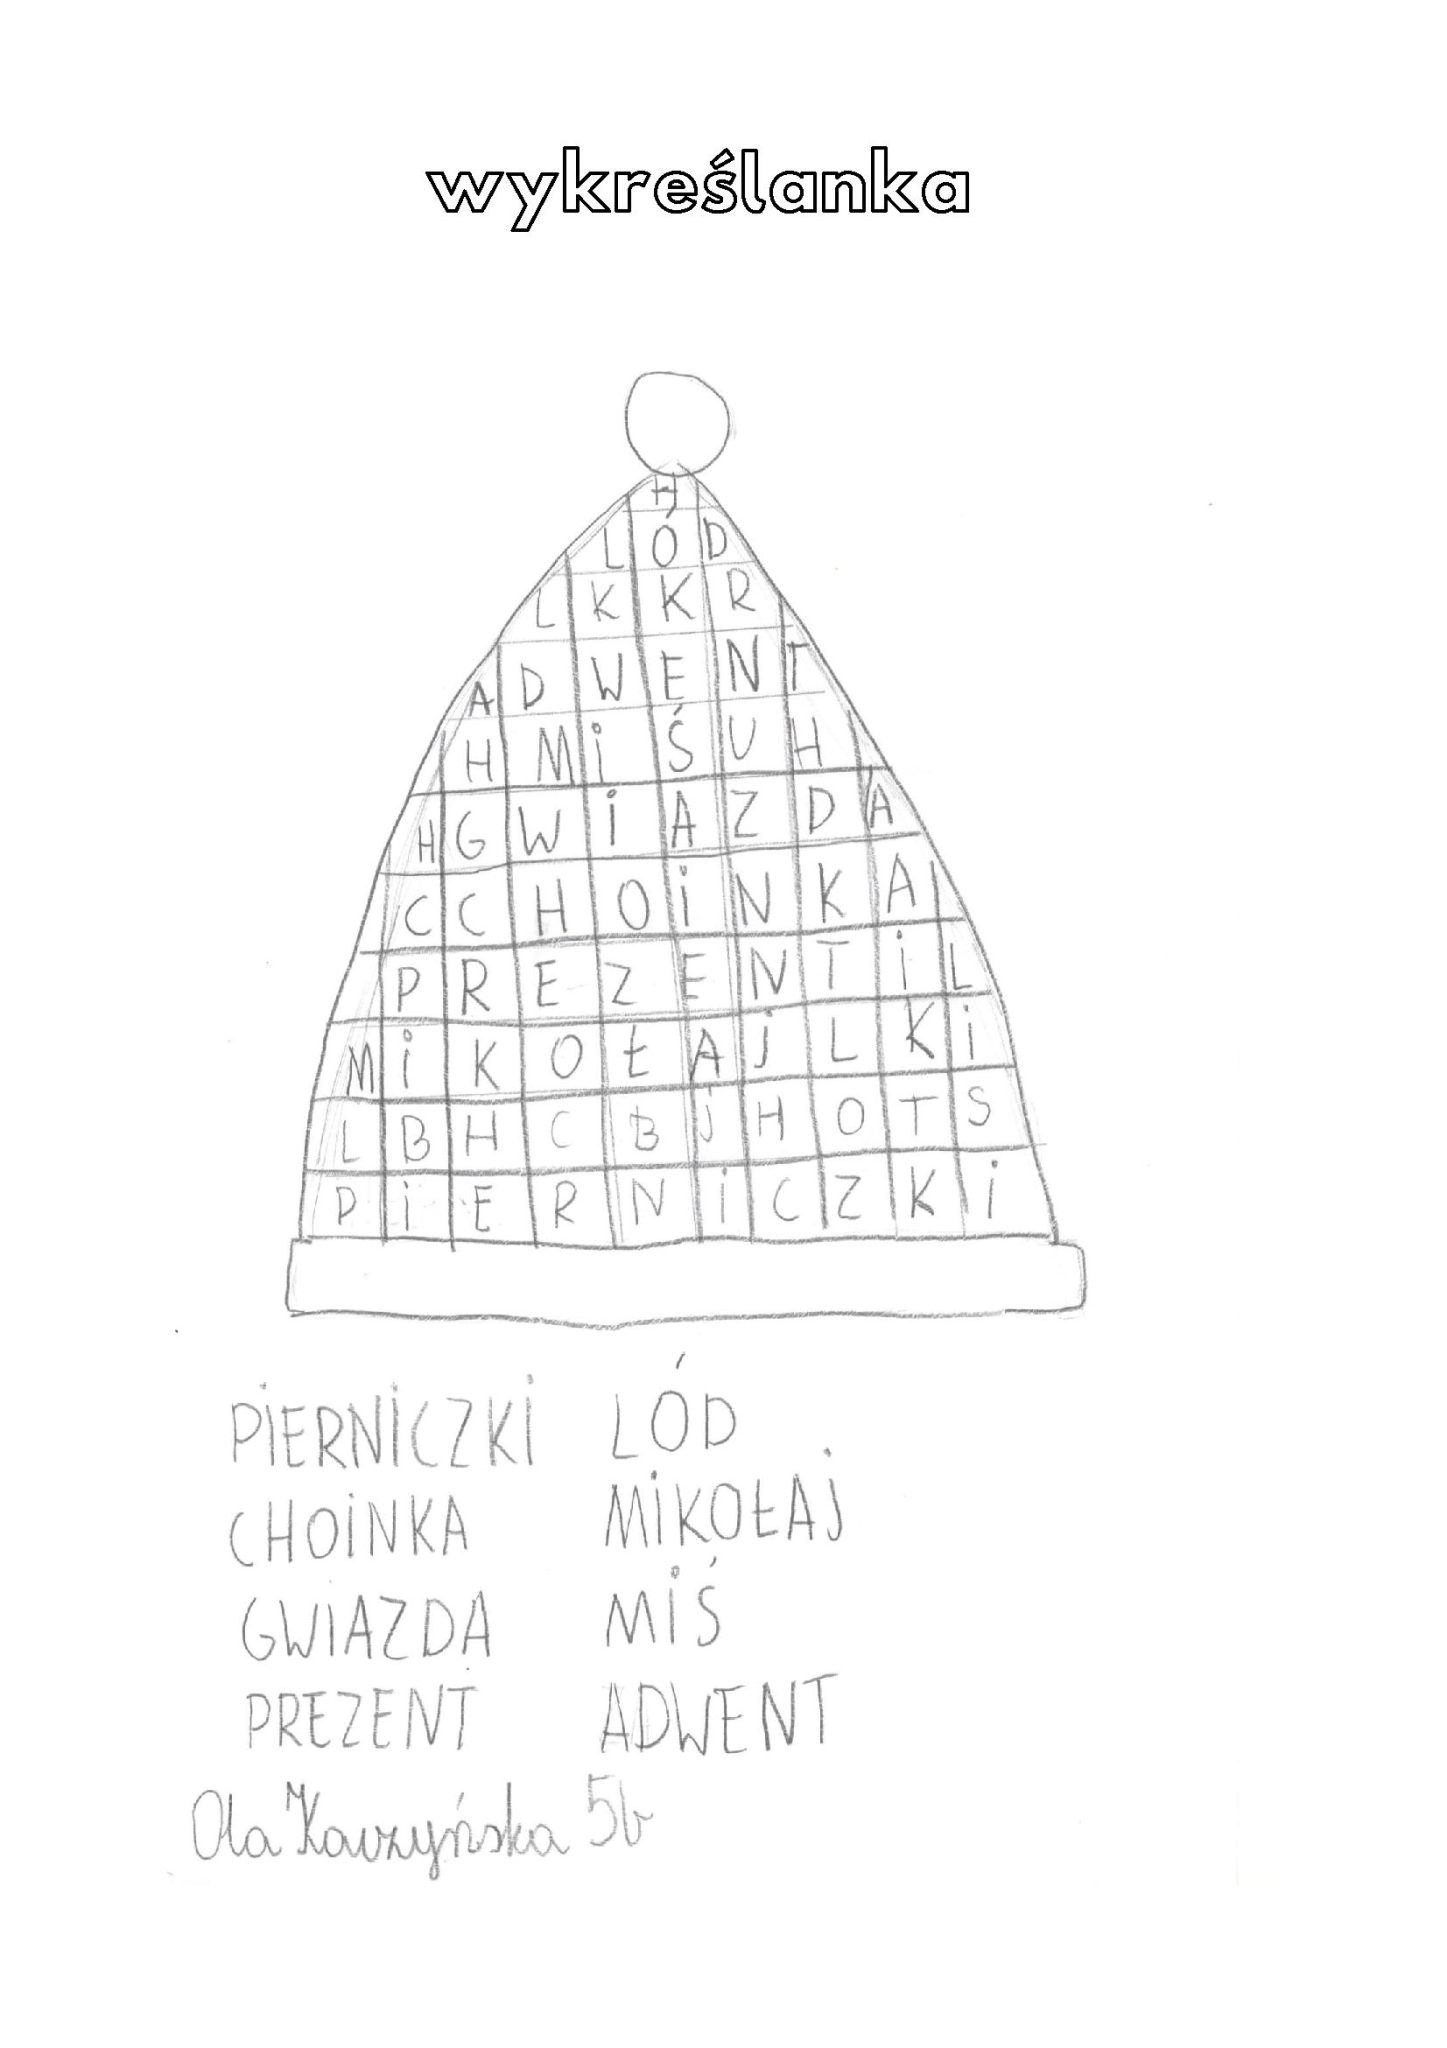 wykreślanka
H
L Ó D
L K K R
A D W E N T
H M i Ś U H
H G W i A Z D A
C C H O i N K A
P R E Z E N T i L
M i K O Ł A J L K i
L B H C B J H O T S
P i E R N i C Z K i
PiERNiCZKi LÓD
CHOiNKA MiKOŁAJ
GWiAZDA MiŚ
PREZENT ADWENT
Ola Kaczyńska 5b